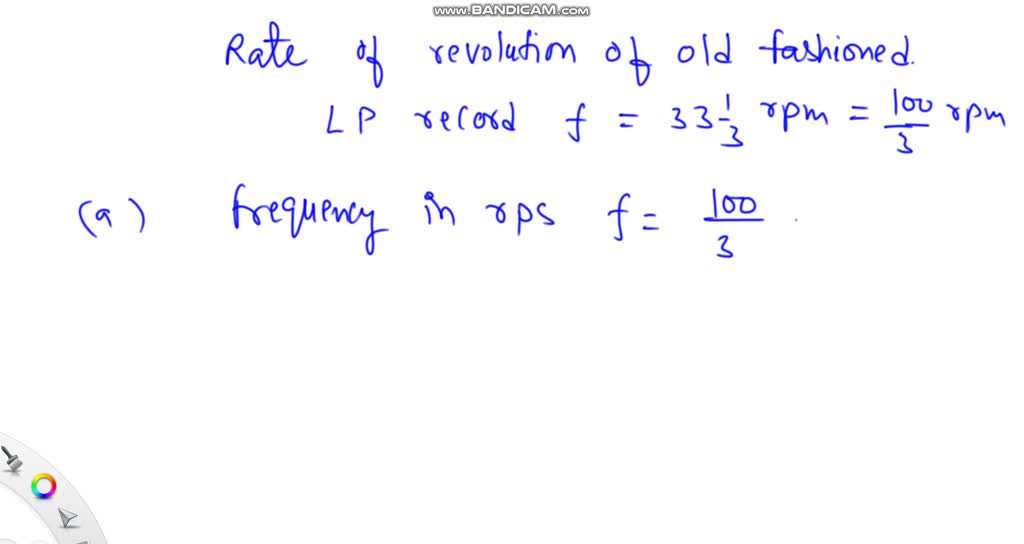 www.BANDICAM.com
Rate of revolution of old fashioned.
LP record f = 33 1/3 rpm = 100/3 rpm
(a) frequency in rps f = 100/3